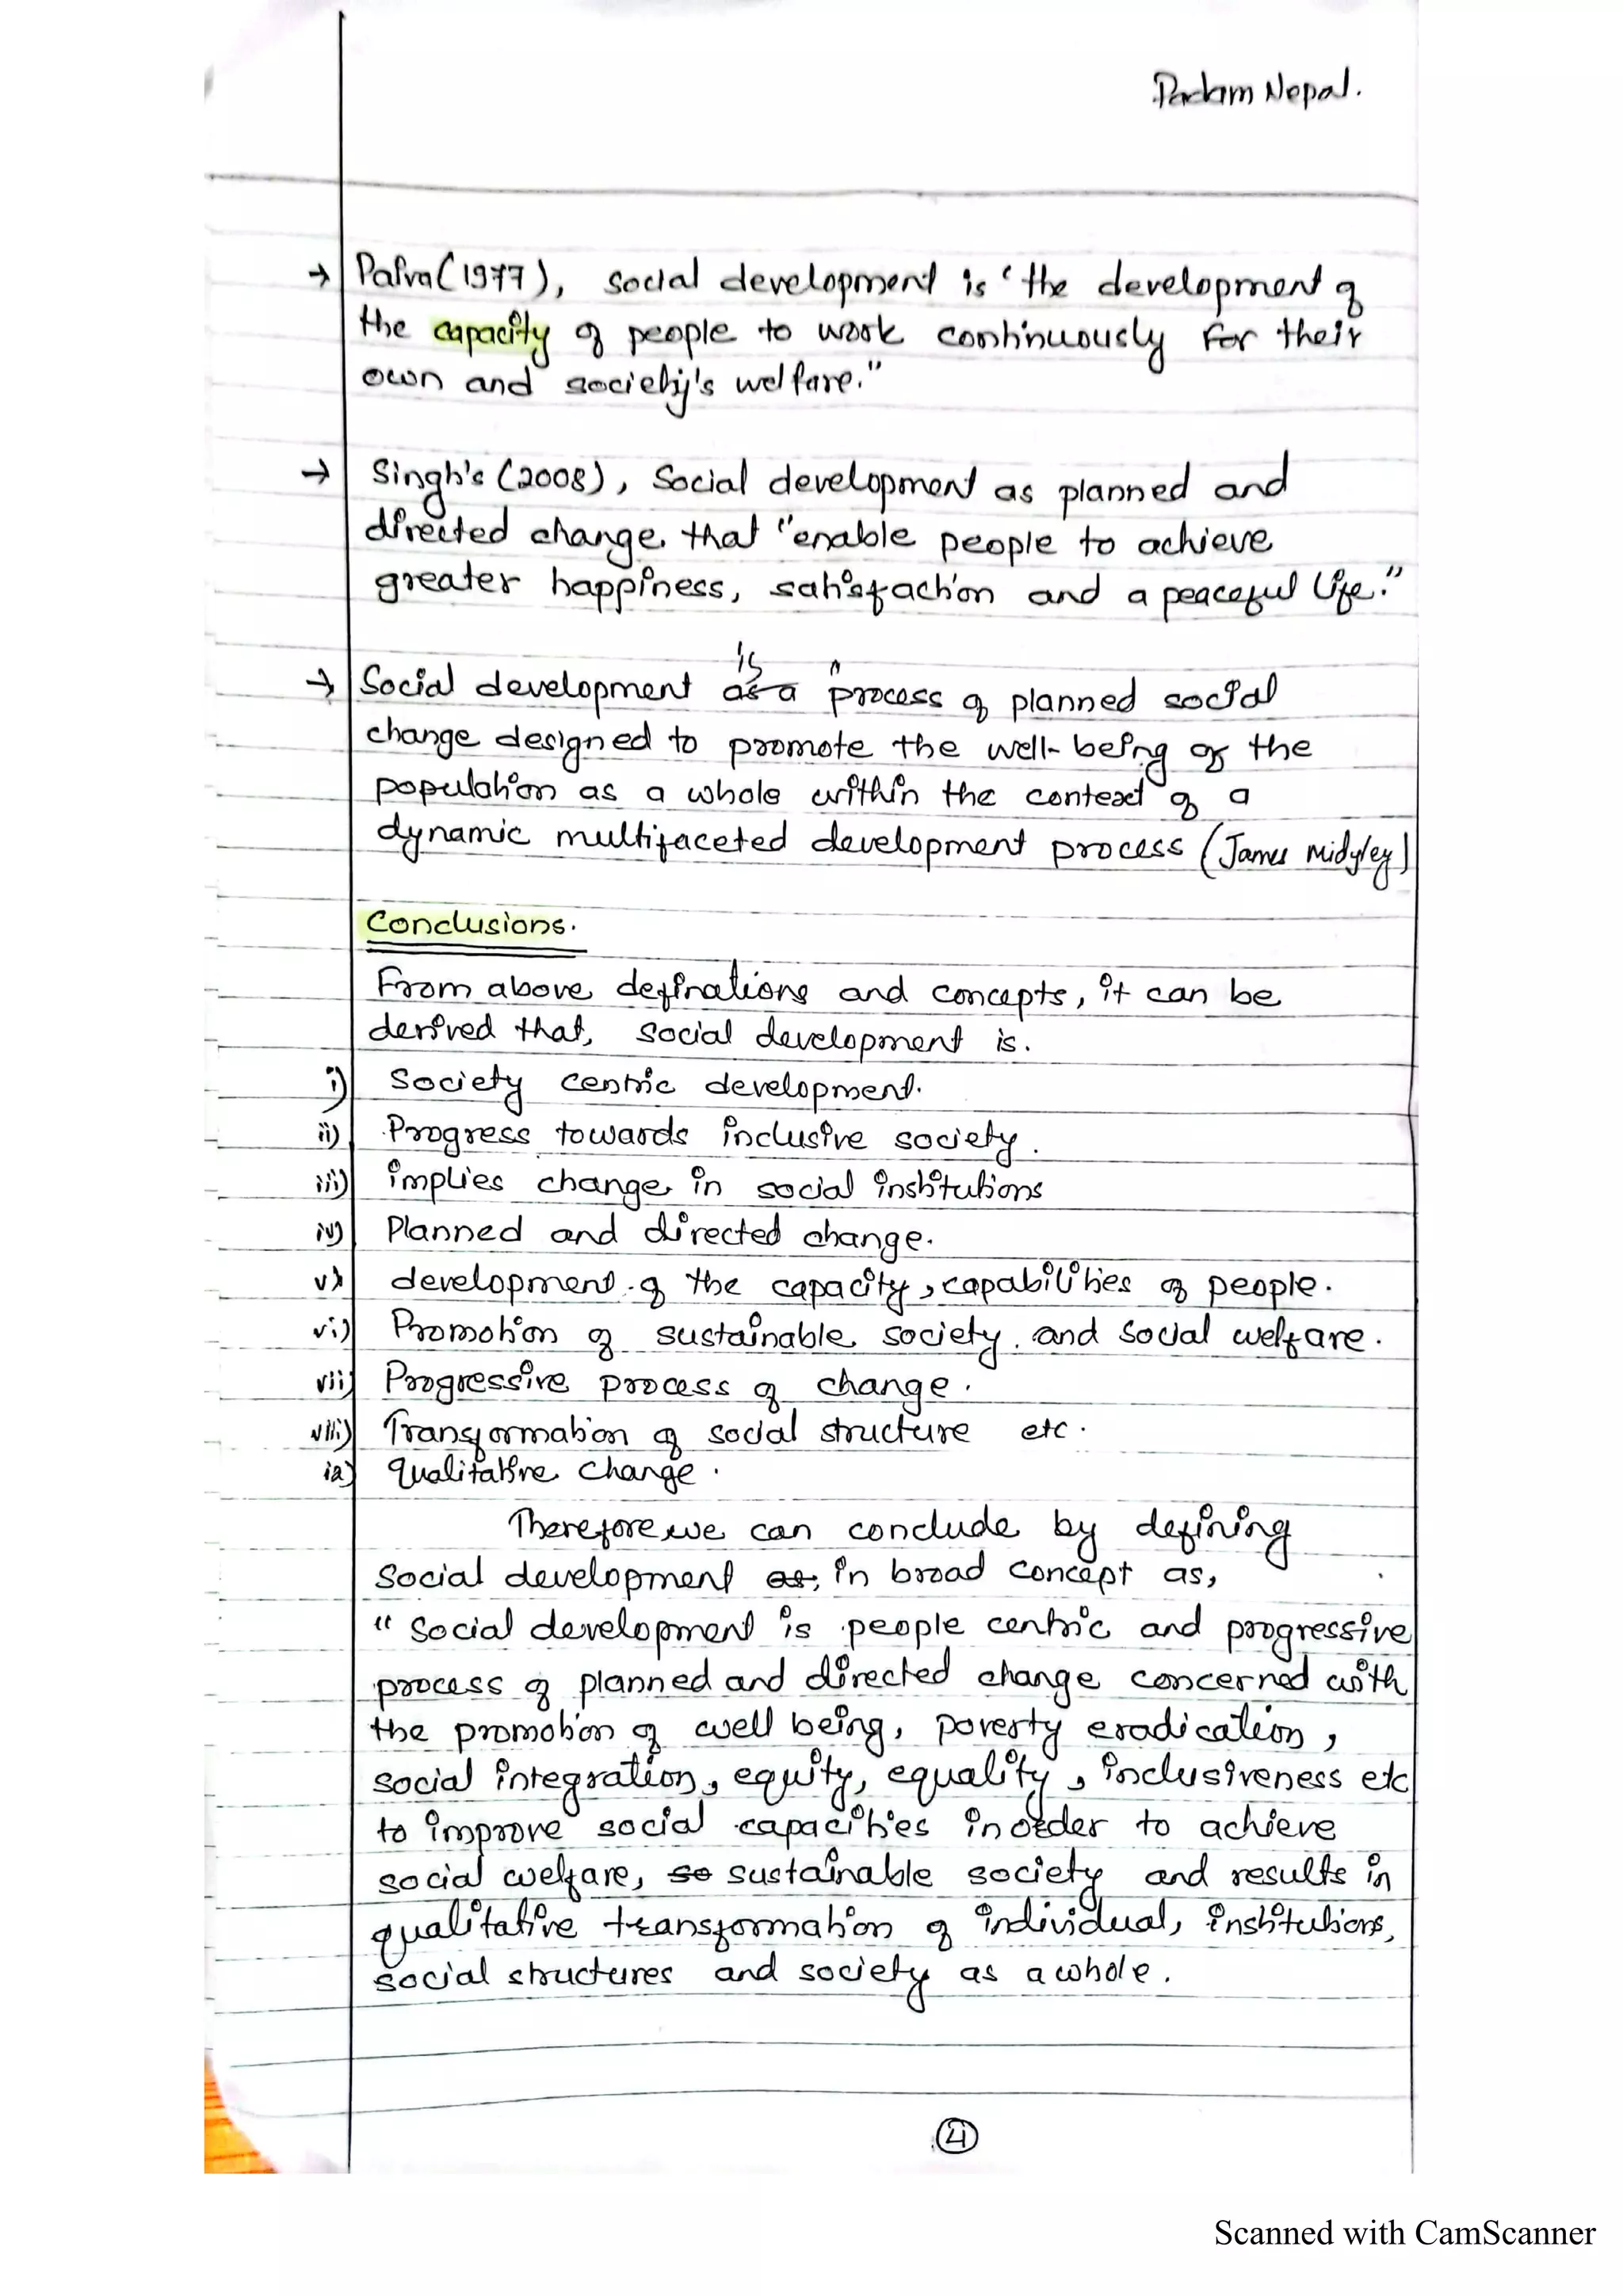 Padam Nepal.
→ Paiva (1977), social development is 'the development of
the capacity of people to work continuously for their
own and society's welfare."
→ Singh's (2008), Social development as planned and
directed change that "enable people to achieve
greater happiness, satisfaction and a peaceful life."
is
→ Social development as a process of planned social
change designed to promote the well-being of the
population as a whole within the context of a
dynamic multifaceted development process (James Midgley)
Conclusions.
From above definations and concepts, it can be
derived that, social development is.
i) Society centric development.
ii) Progress towards inclusive society.
iii) implies change in social institutions
iv) Planned and directed change.
v) development of the capacity, capabilities of people.
vi) Promotion of sustainable society and social welfare.
vii) Progressive process of change.
viii) Transformation of social structure etc.
ix) qualitative change.
Therefore we can conclude by defining
social development as, in broad concept as,
" Social development is people centric and progressive
process of planned and directed change concerned with
the promotion of well being, poverty eradication,
social integration, equity, equality, inclusiveness etc
to improve social capacities inorder to achieve
social welfare, so sustainable society and results in
qualitative transformation of individual, institutions,
social structures and society as a whole.
4
Scanned with CamScanner